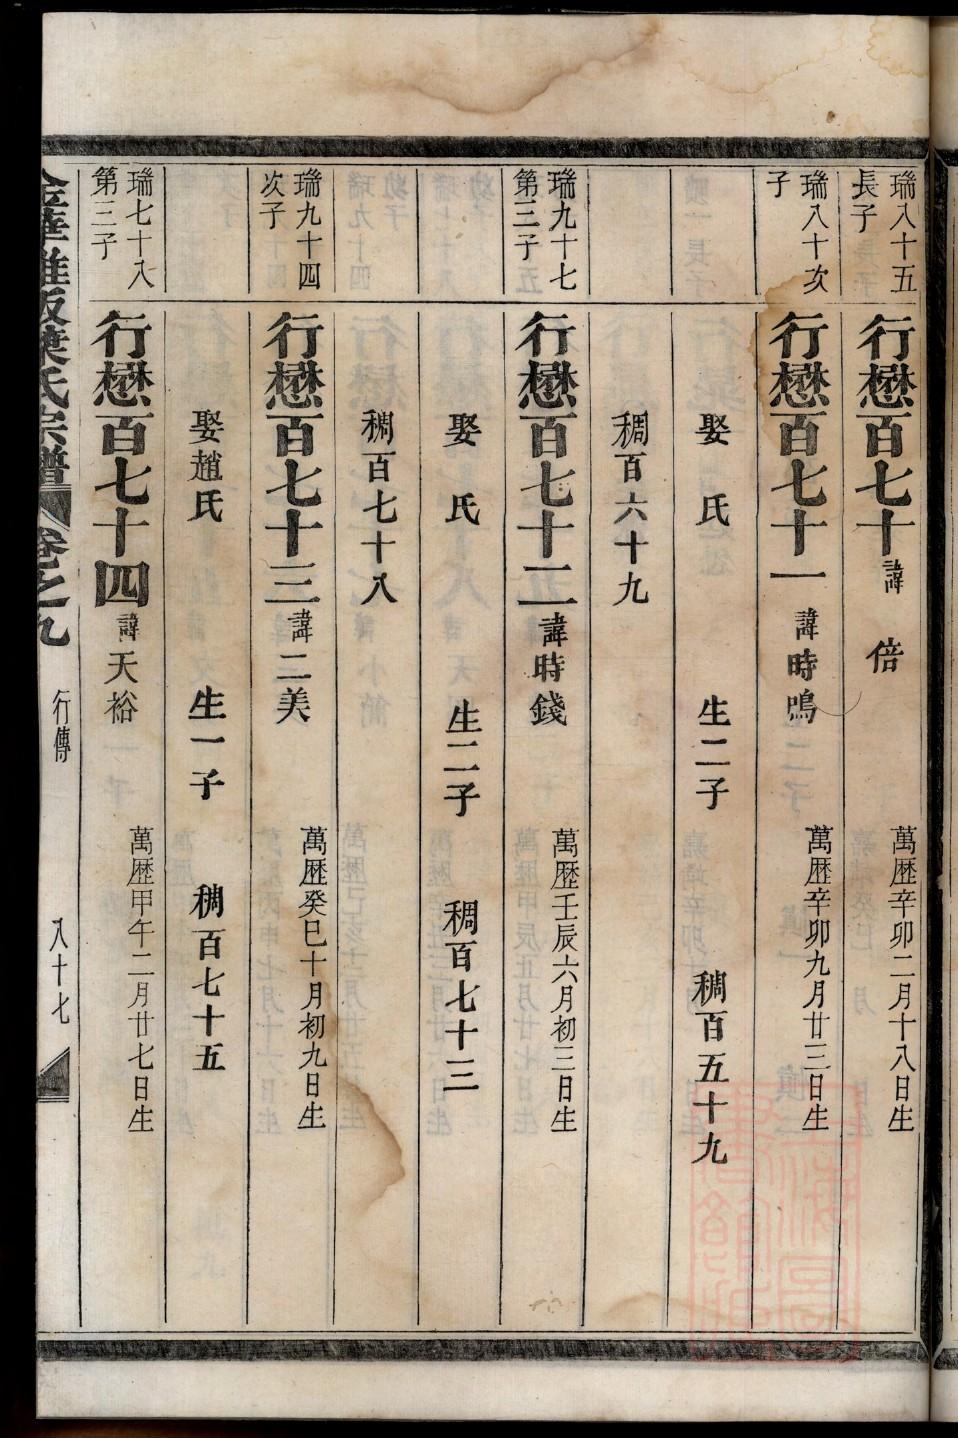 璫八十五
長子
行懋百七十 諱 倍
萬歷辛卯二月十八日生
璫八十次
子
行懋百七十一 諱時鳴
萬歷辛卯九月廿三日生
娶 氏 生二子 稠百五十九
稠百六十九
璫九十七
第三子
行懋百七十二 諱時錢
萬歷壬辰六月初三日生
娶 氏 生二子 稠百七十三
稠百七十八
璫九十四
次子
行懋百七十三 諱二美
萬歷癸巳十月初九日生
娶趙氏 生一子 稠百七十五
璫七十八
第三子
行懋百七十四 諱天裕
萬歷甲午二月廿七日生
金華 葉氏宗譜 卷之九 行傳 八十七